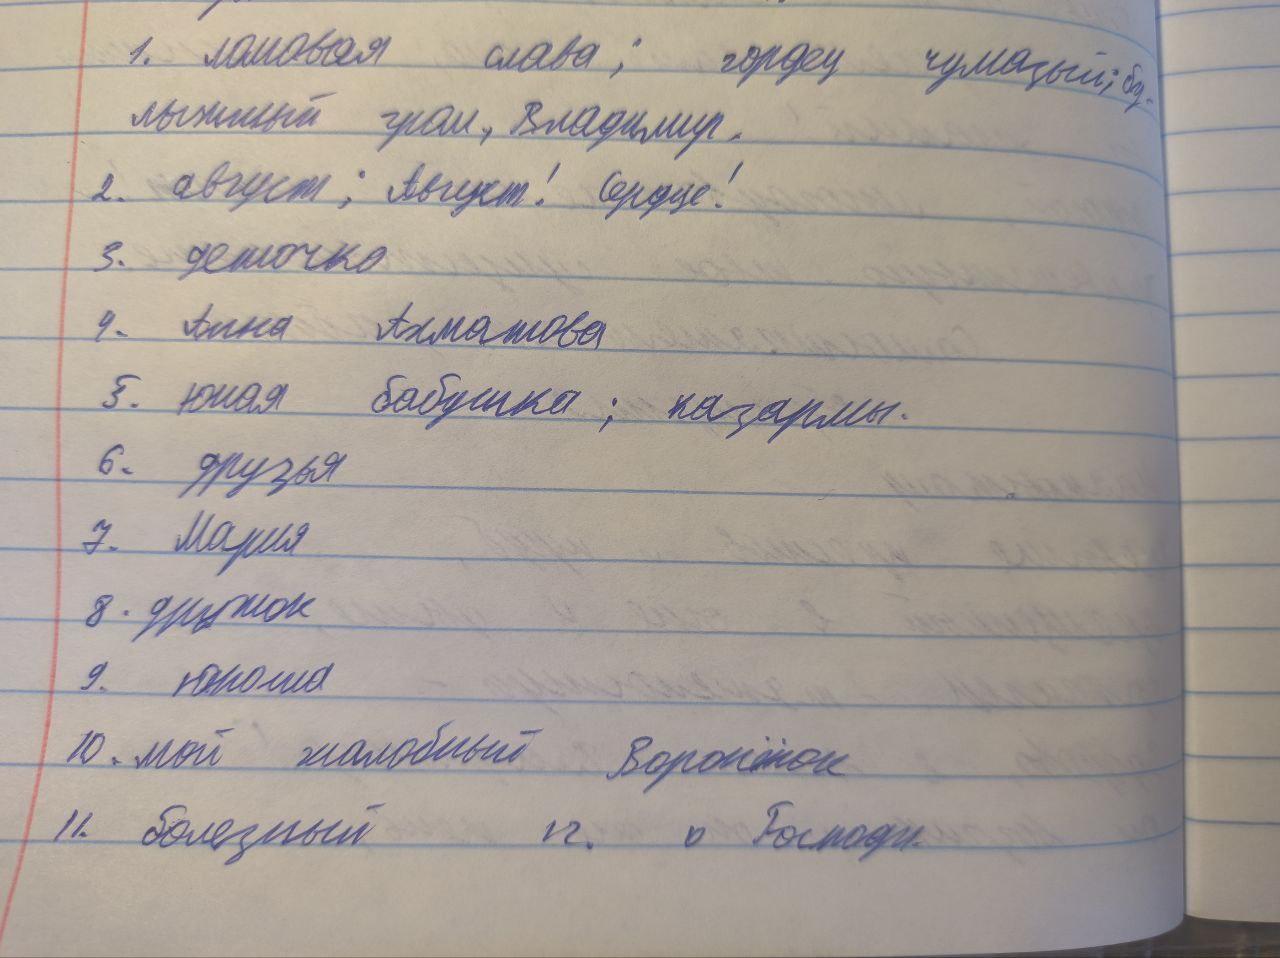 1. ломовая слава; гордец чумазый; бу-
лыжный гром, Владимир.
2. август; Август! Сердце!
3. деточка
4. Анна Ахматова
5. юная бабушка; казармы.
6. друзья
7. Мария
8. дружок
9. юноша
10. мой жалобный Воронёнок
11. болезный 12. о Господи.